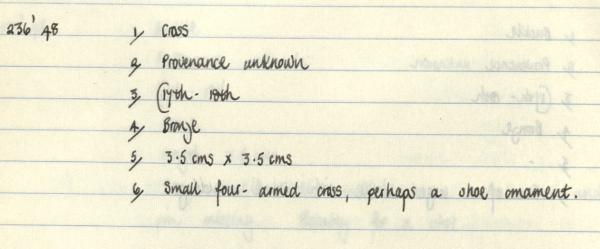 236' 48
1/ Cross
2/ Provenance unknown
3/ (17th - 18th
4/ Bronze
5/ 3.5 cms x 3.5 cms
6/ Small four-armed cross, perhaps a shoe ornament.